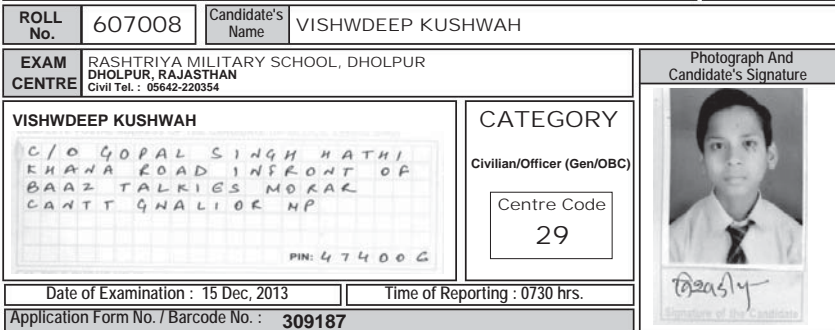 ROLL No. 607008 Candidate's Name VISHWDEEP KUSHWAH
EXAM CENTRE RASHTRIYA MILITARY SCHOOL, DHOLPUR
DHOLPUR, RAJASTHAN
Civil Tel. : 05642-220354
Photograph And
Candidate's Signature
VISHWDEEP KUSHWAH
C/O GOPAL SINGH HATHI
KHANA ROAD INFRONT OF
BAAZ TALKIES MORAR
CANTT GWALIOR MP
PIN: 474006
CATEGORY
Civilian/Officer (Gen/OBC)
Centre Code
29
Signature of the Candidate
Date of Examination : 15 Dec, 2013 Time of Reporting : 0730 hrs.
Application Form No. / Barcode No. : 309187